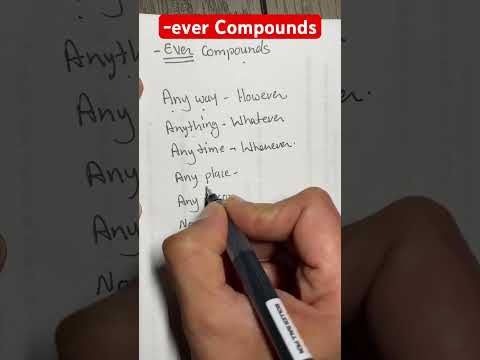 -ever Compounds
- Ever Compounds
Any way - However
Anything - Whatever
Any time - Whenever.
Any place -
Any
ROLLER BALL PEN